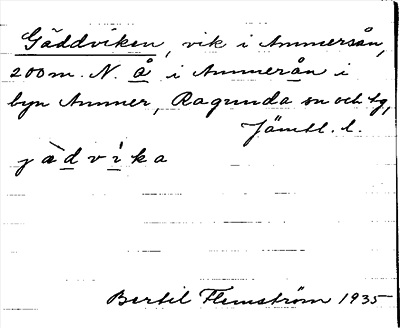 Gäddviken, vik i Ammersån,
200 m. N. å i Ammerån i
byn Ammer, Ragunda sn och tg,
Jämtl. l.
jàdvika
Bertil Flemström 1935